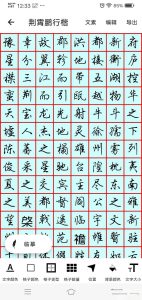 12:33
85%
荆霄鹏行楷
文案 编辑 导出
豫章故郡洪都新府
星分翼轸地接衡庐
襟三江而带五湖控
蛮荆而引瓯越物华
天宝龙光射牛斗之
墟人杰地灵徐孺下
陈蕃之榻雄州雾列
俊采星驰台隍枕夷
夏之交宾主尽东南
之美都督阎公之雅
望棨戟遥临宇文新
范襜帷暂驻
临摹
文字颜色 格子颜色 格子类型 格子数量 位置 背景颜色 文字大小